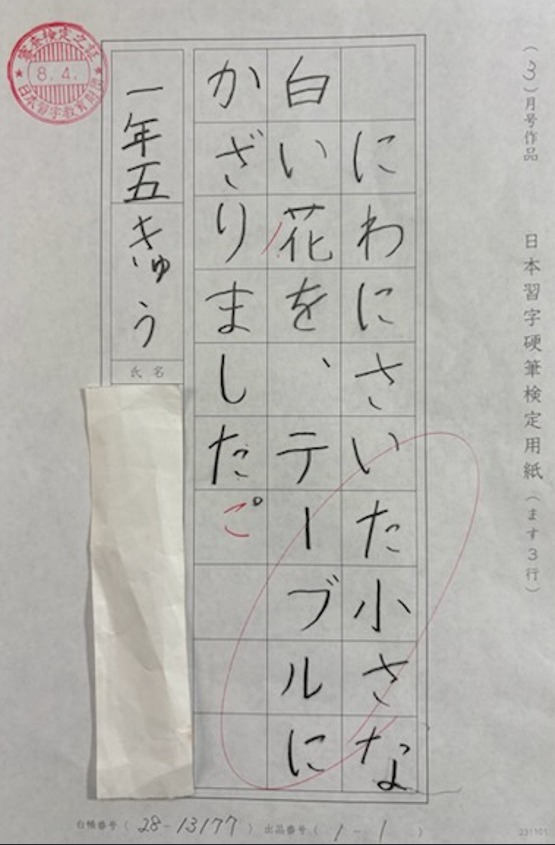 (3)月号作品
日本習字硬筆検定用紙(ます3行)
にわにさいた小さな
白い花を、テーブルに
かざりました。
一年五きゅう
氏名
審査検定之証
8.4.
日本習字教育財団
台帳番号(28-13177) 出品番号(1-1)
231101